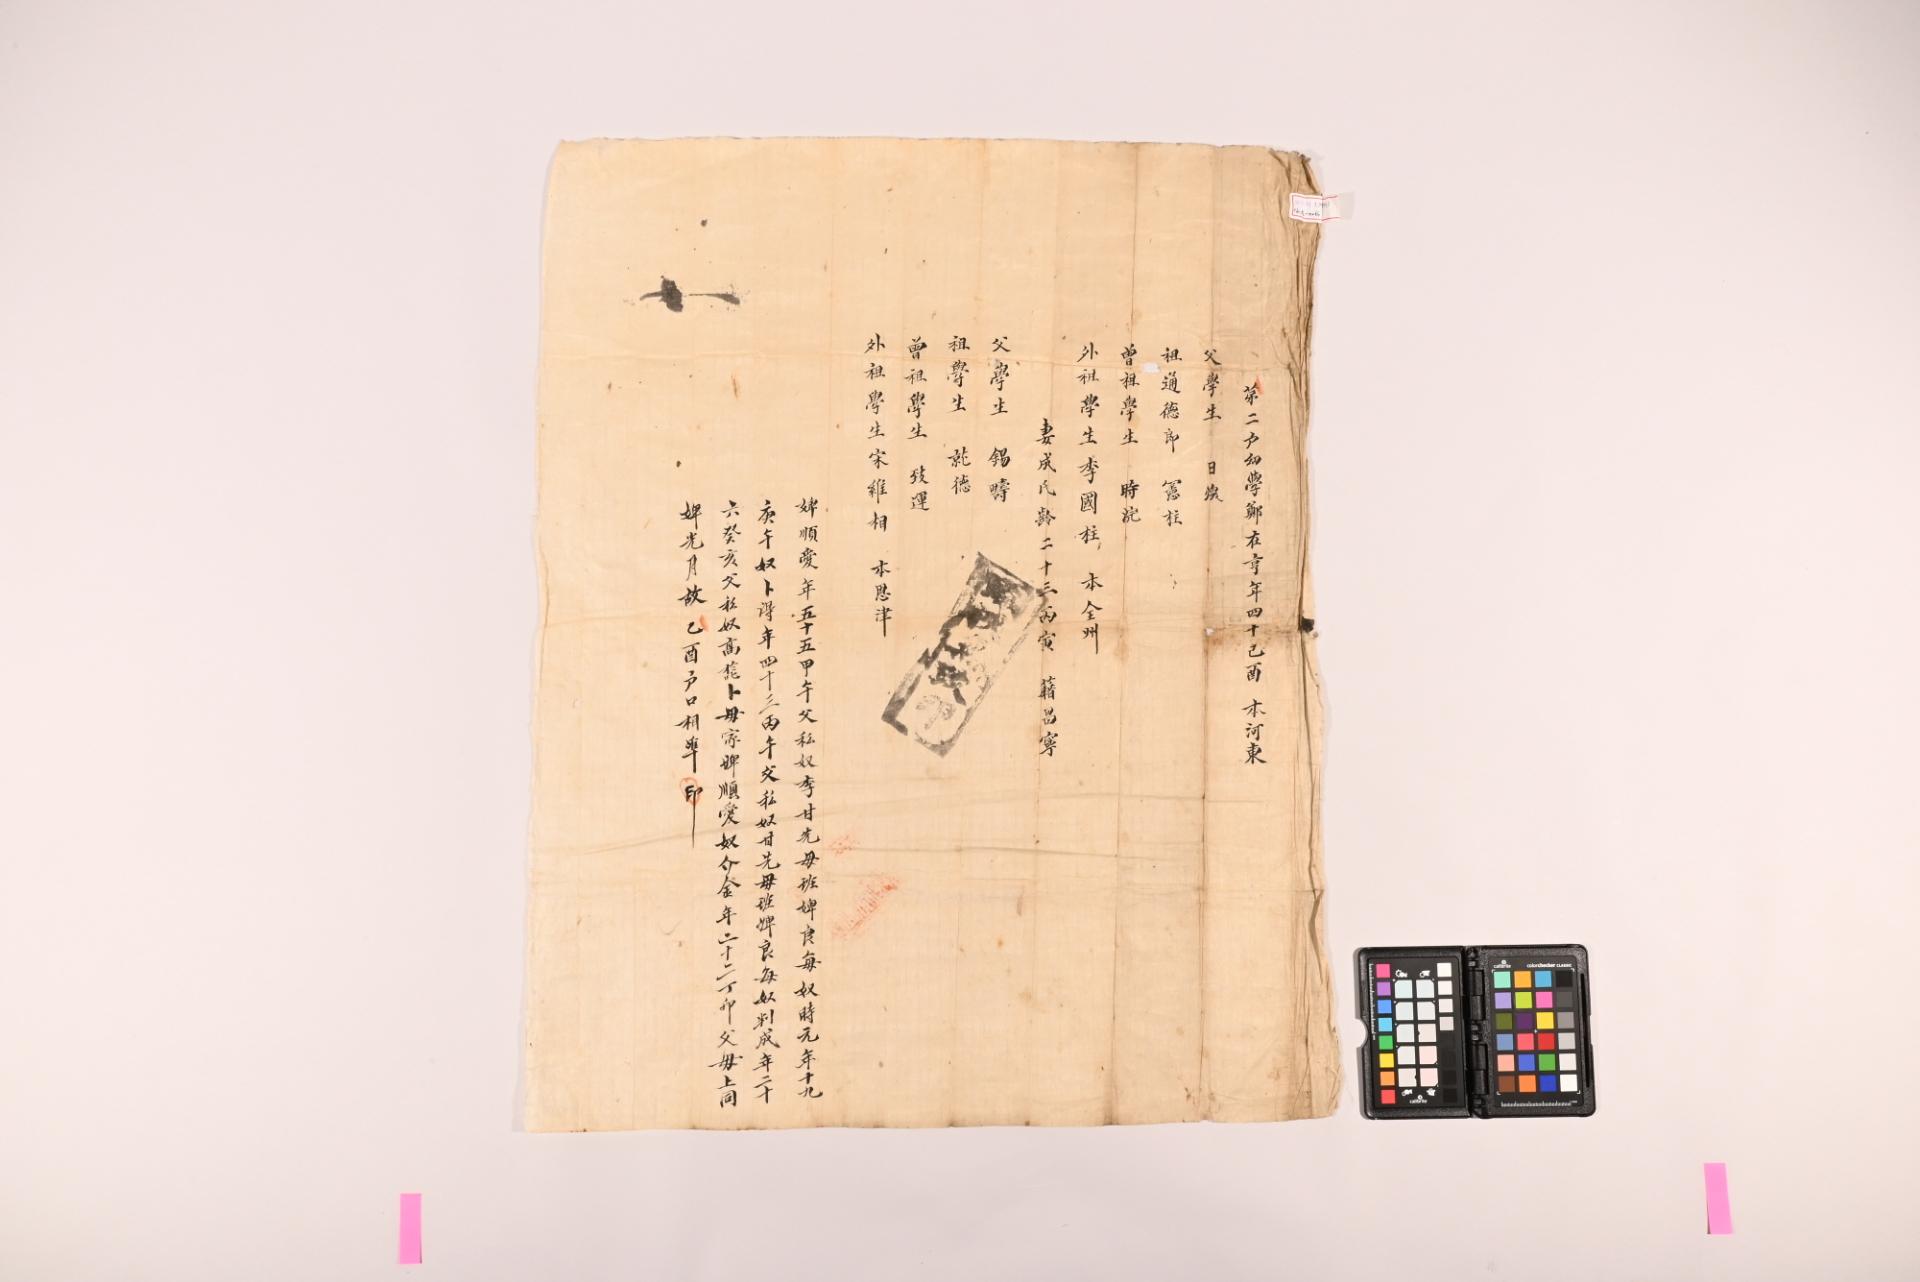 第二戶幼學鄭在 年四十己酉 本河東
父學生 日
祖通德郎 憲柱
曾祖學生 時
外祖學生李國柱 本全州
妻成氏齡二十三丙寅 籍昌寧
父學生 錫疇
祖學生 德
曾祖學生 致運
外祖學生宋維相 本恩津
婢順愛年五十五甲午父私奴李甘先母班婢良每奴時元年十九
庚午奴卜得年四十三丙午父私奴甘先母班婢良每奴判成年二十
六癸亥父私奴高 卜母家婢順愛奴介金年二十二丁卯父母上同
婢光月故 己酉戶口相準 印
calibrite
calibrite
colorchecker CLASSIC
calibrite